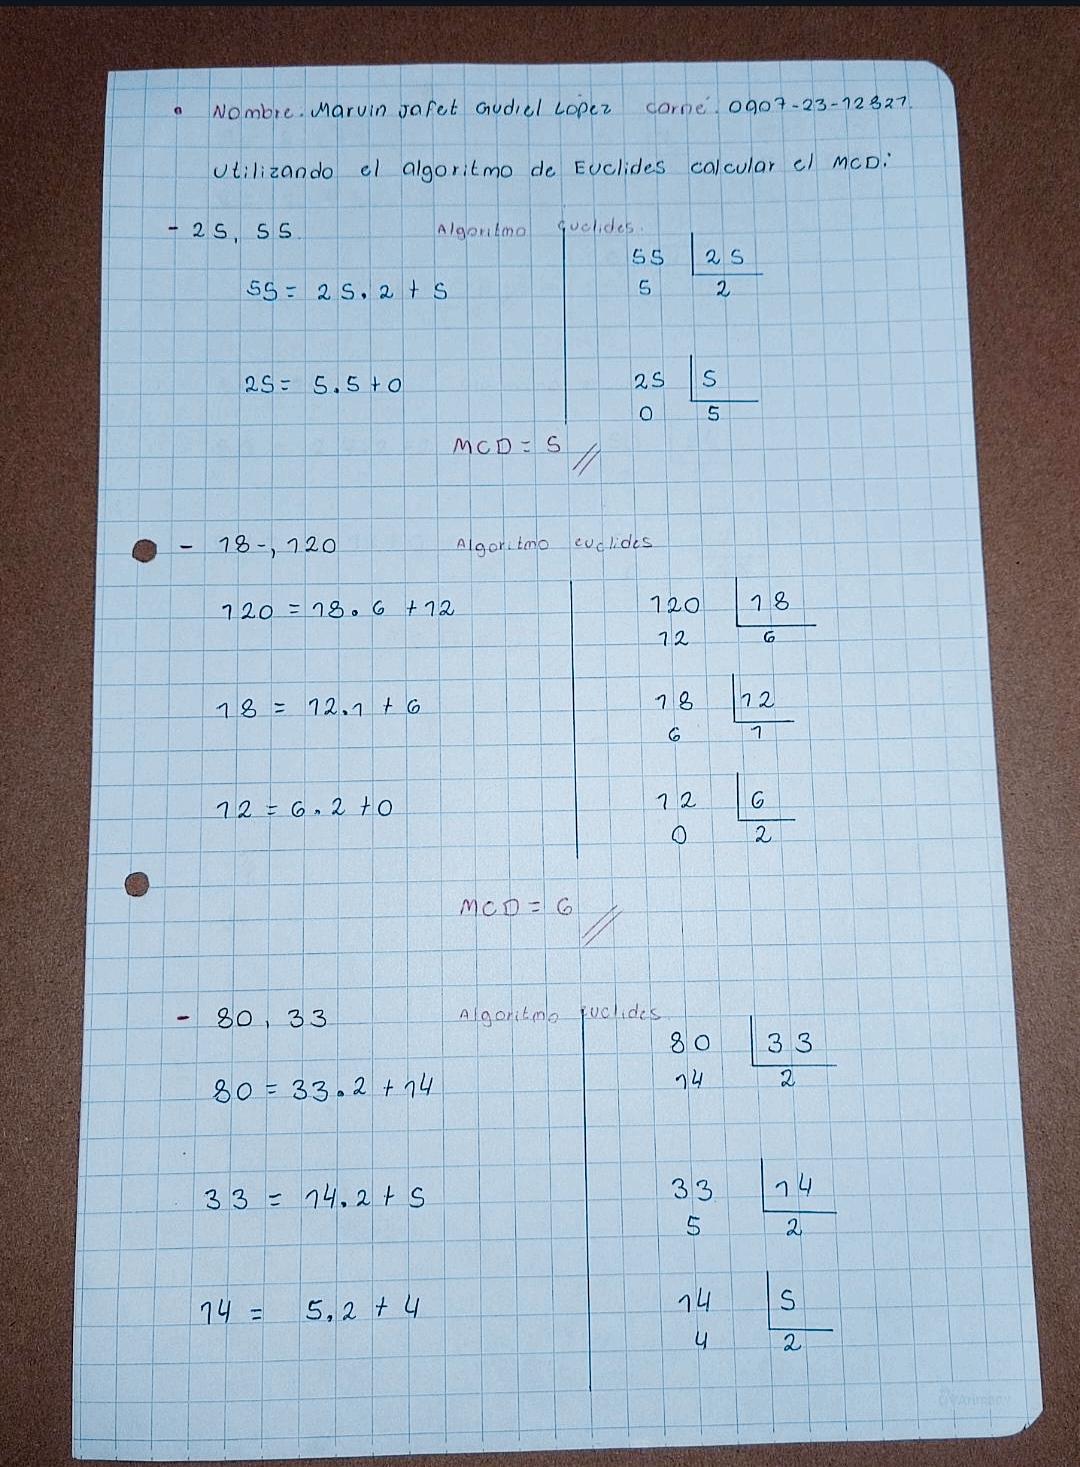 Nombre: Marvin Jafet Gudiel López carné: 0907-23-12327.
Utilizando el algoritmo de Euclides calcular el MCD:
- 25, 55 Algoritmo Euclides.
55 25
55 = 25.2 + 5 5 2
25 = 5.5 + 0 25 5
0 5
MCD = 5 //
- 18-, 120 Algoritmo euclides
120 = 18.6 + 12 120 18
12 6
18 = 12.1 + 6 18 12
6 1
12 = 6.2 + 0 12 6
0 2
MCD = 6 //
- 80, 33 Algoritmo Euclides
80 33
80 = 33.2 + 14 14 2
33 = 14.2 + 5 33 14
5 2
14 = 5.2 + 4 14 5
4 2